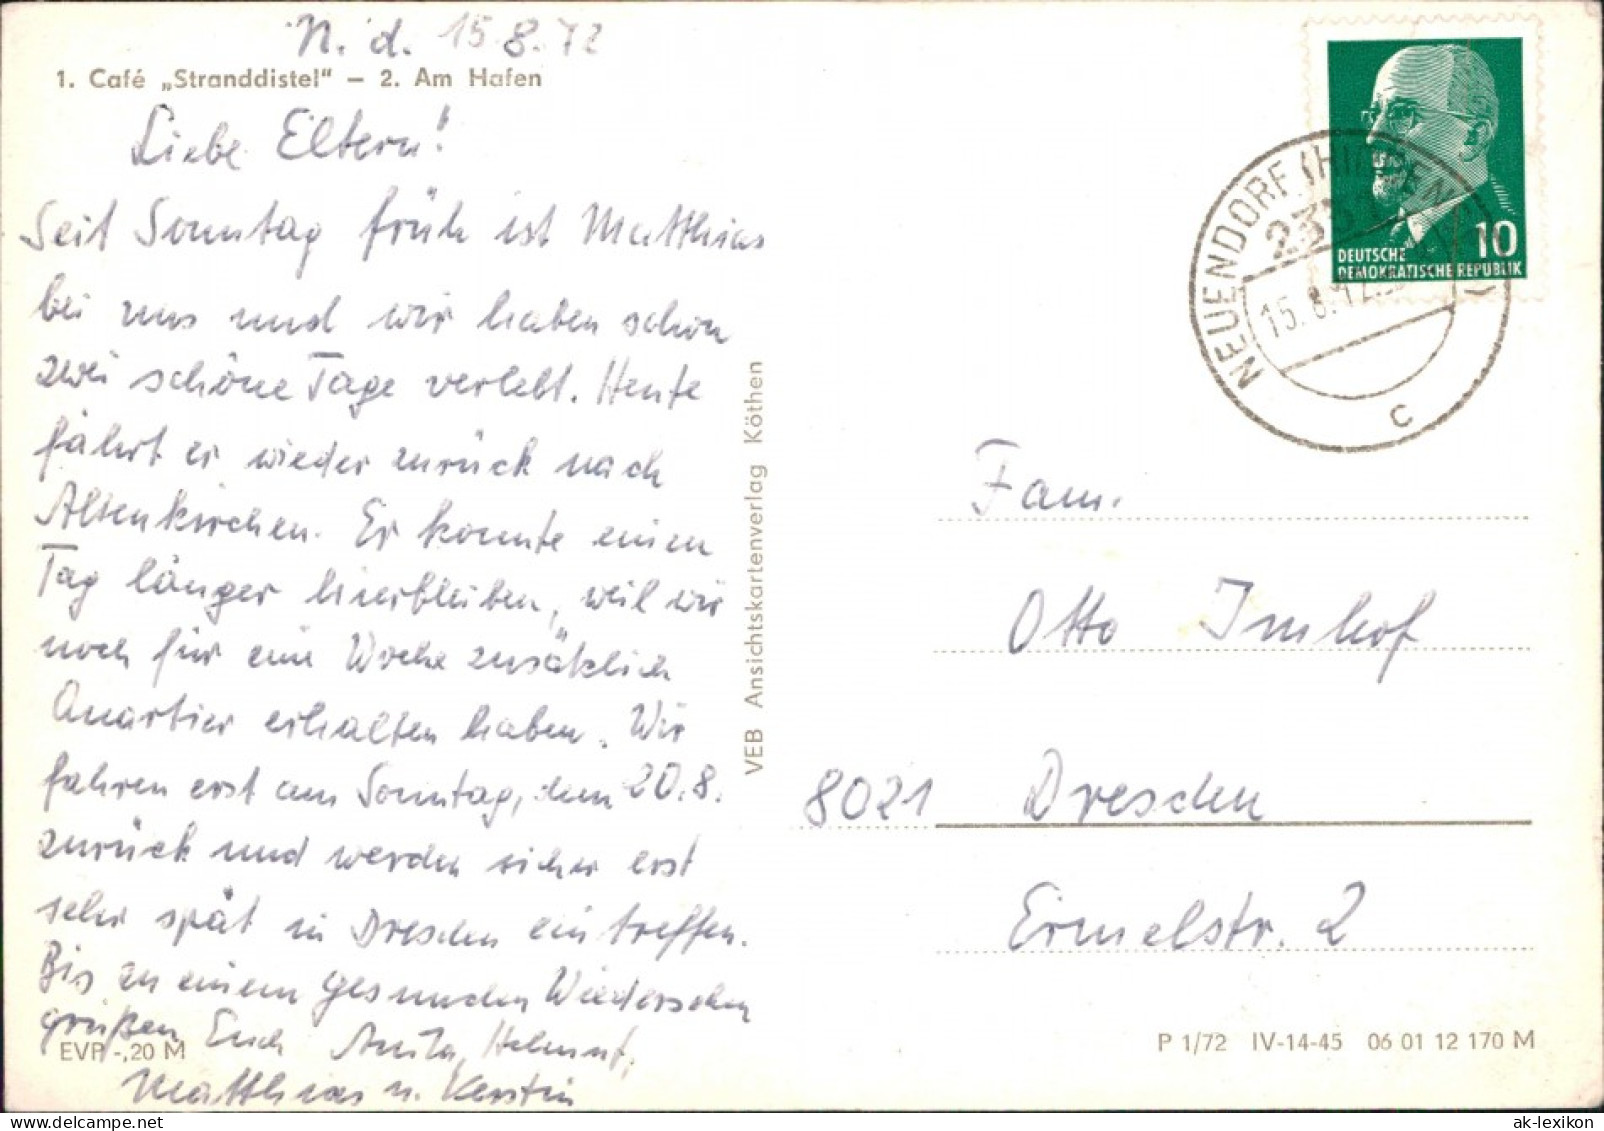 N. d. 15.8.72
1. Café „Stranddistel" – 2. Am Hafen
Liebe Eltern!
Seit Sonntag früh ist Matthias
bei uns und wir haben schon
zwei schöne Tage verlebt. Heute
fährt er wieder zurück nach
Altenkirchen. Er konnte einen
Tag länger hierbleiben, weil wir
noch für eine Woche zusätzlich
Quartier erhalten haben. Wir
fahren erst am Sonntag, dem 20.8.
zurück und werden sicher erst
sehr spät in Dresden eintreffen.
Bis zu einem gesunden Wiedersehen
grüßen Euch Anita, Helmut,
EVP -,20 M
Matthias u. Kerstin
VEB Ansichtskartenverlag Köthen
10
DEUTSCHE
DEMOKRATISCHE REPUBLIK
NEUENDORF (HIDDEN
15.8.72
c
Fam.
Otto Imhof
8021 Dresden
Ermelstr. 2
P 1/72 IV-14-45 06 01 12 170 M
ak-lexikon